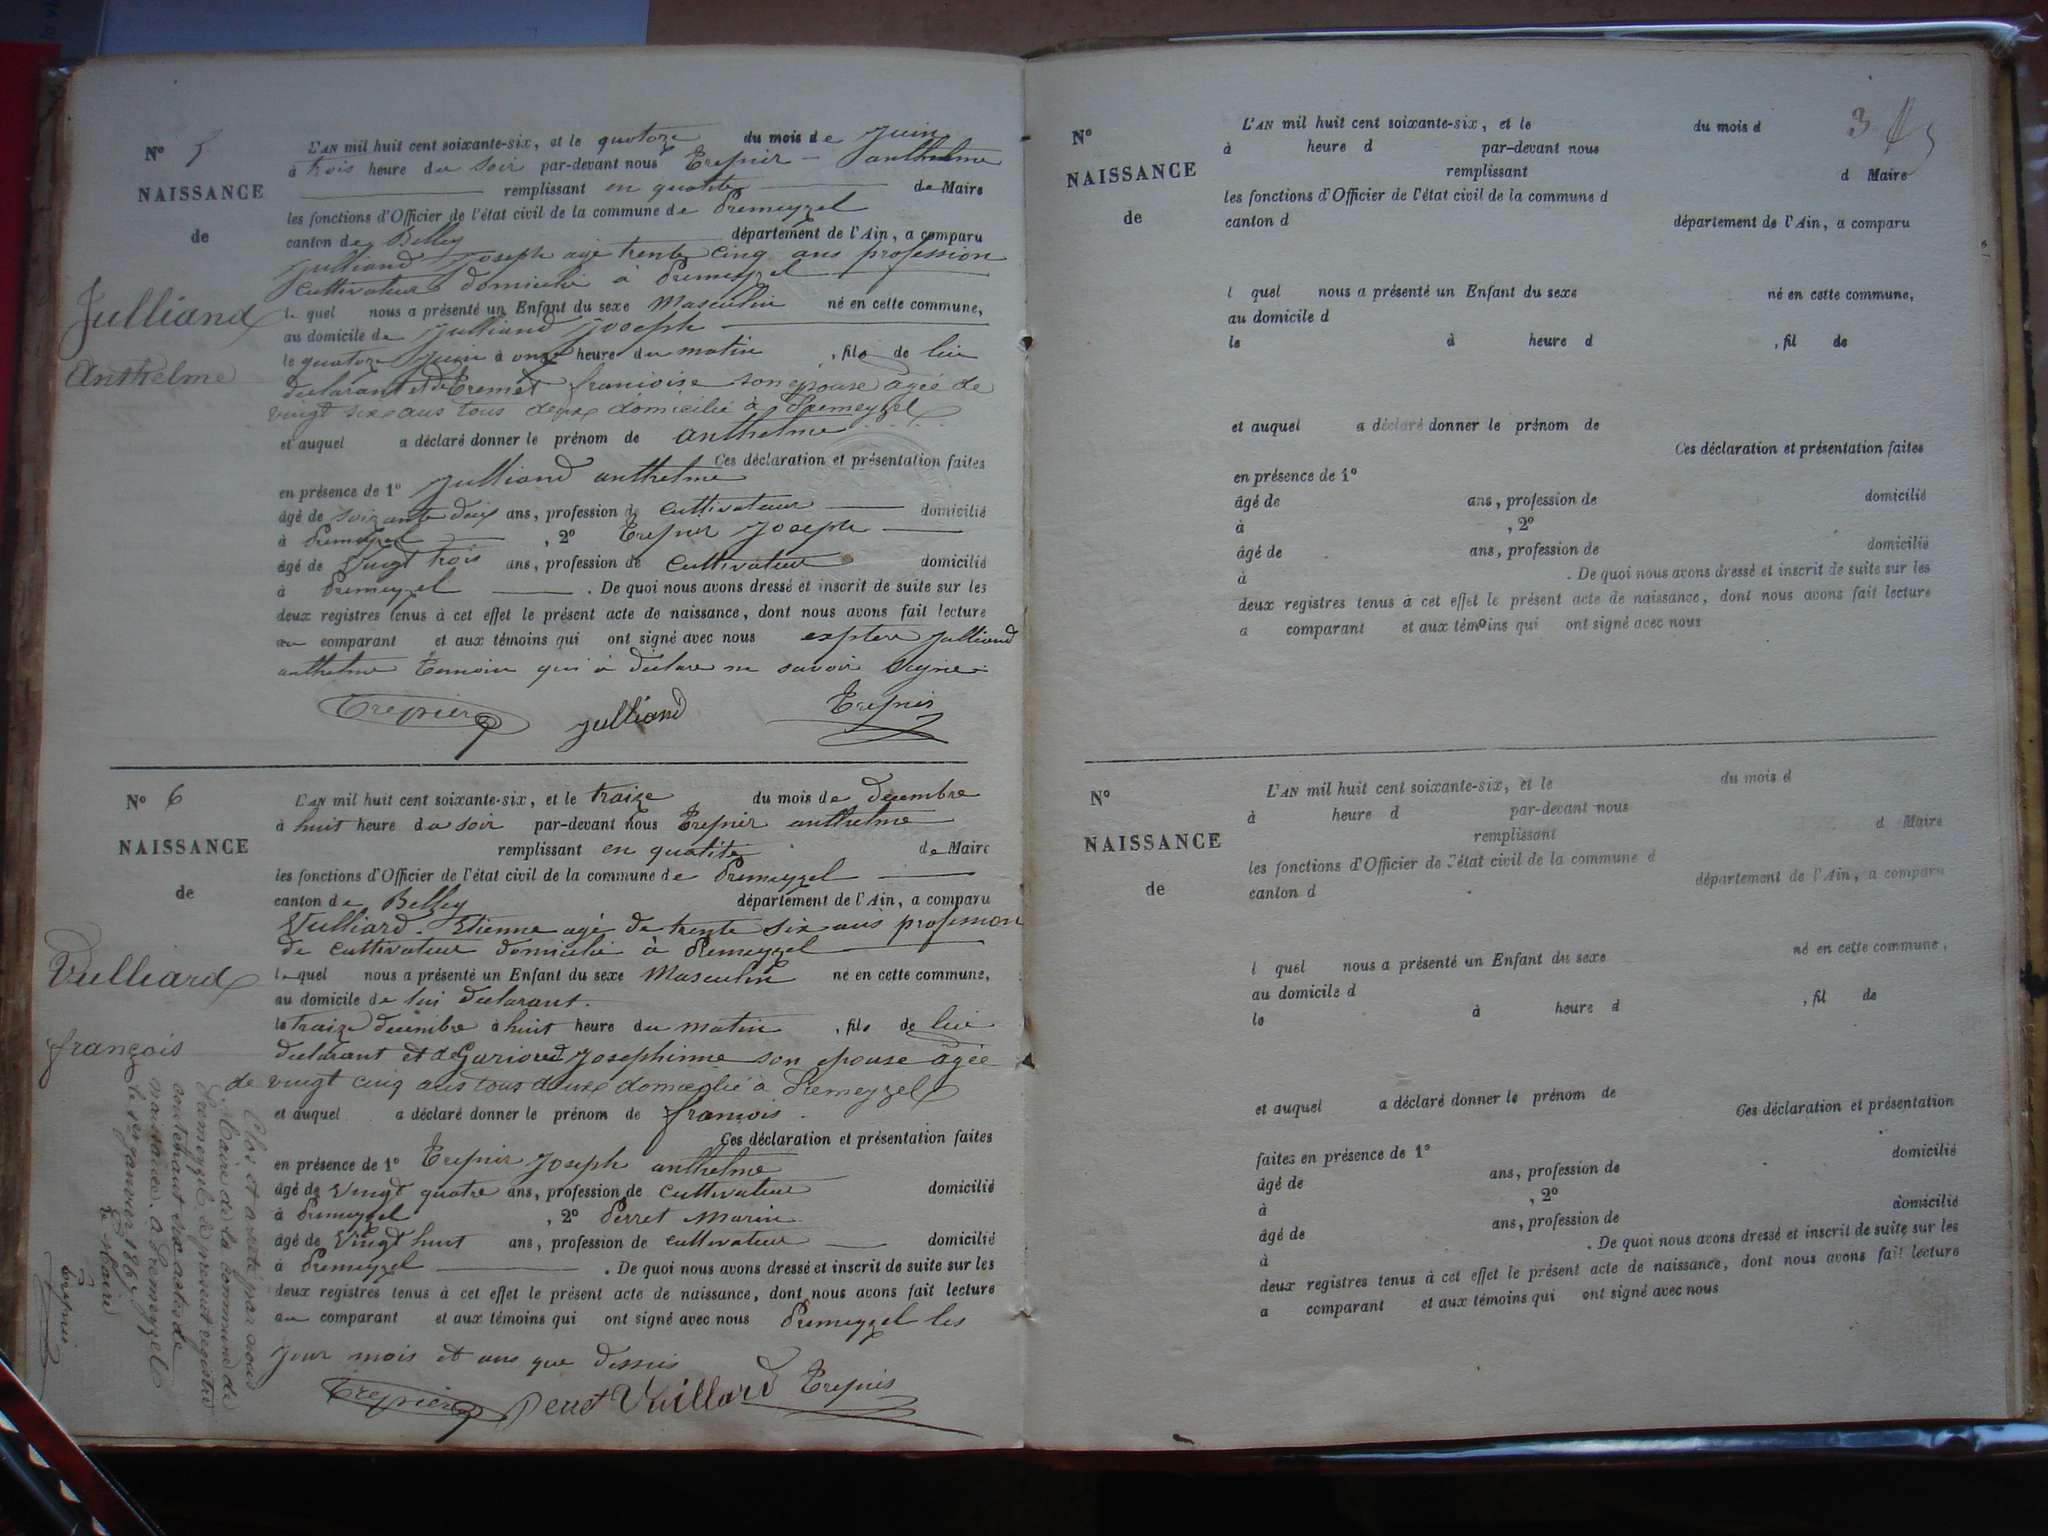 N° 5
NAISSANCE
de
Julliand
Anthelme
L'AN mil huit cent soixante-six, et le quatorze du mois de Juin
à trois heure du soir par-devant nous Trepier anthelme
remplissant en qualité de Maire
les fonctions d'Officier de l'état civil de la commune de Premeyzel
canton de Belley département de l'Ain, a comparu
Julliand Joseph agé trente cinq ans profession
cultivateur domicilié à Premeyzel
le quel nous a présenté un Enfant du sexe Masculin né en cette commune,
au domicile de Julliand Joseph
le quatorze Juin à onze heure du matin , fils de lui
declarant et de Tremet francoise son épouse agée de
vingt six ans tous deux domicilié à Premeyzel
et auquel a déclaré donner le prénom de anthelme
Ces déclaration et présentation faites
en présence de 1° Julliand anthelme
âgé de soixante deux ans, profession de cultivateur domicilié
à Premeyzel , 2° Trepier Joseph
âgé de Vingt trois ans, profession de cultivateur domicilié
à Premeyzel . De quoi nous avons dressé et inscrit de suite sur les
deux registres tenus à cet effet le présent acte de naissance, dont nous avons fait lecture
au comparant et aux témoins qui ont signé avec nous Julliand
anthelme temoin qui à déclare ne savoir signe
Trepier Julliand Trepier
N° 6
NAISSANCE
de
Vulliard
françois
L'AN mil huit cent soixante-six, et le traize du mois de decembre
à huit heure du soir par-devant nous Trepier anthelme
remplissant en qualité de Maire
les fonctions d'Officier de l'état civil de la commune de Premeyzel
canton de Belley département de l'Ain, a comparu
Vulliard Etienne agé de trente six ans profession
de cultivateur domicilié à Premeyzel
le quel nous a présenté un Enfant du sexe Masculin né en cette commune,
au domicile de lui declarant.
le traize decembre à huit heure du matin , fils de lui
declarant et de Garioud Josephinne son epouse agée
de vingt cinq ans tous deux domicilié à Premeyzel
et auquel a déclaré donner le prénom de francois.
Ces déclaration et présentation faites
en présence de 1° Trepier Joseph anthelme
âgé de Vingt quatre ans, profession de cultivateur domicilié
à Premeyzel , 2° Perret Marin
âgé de Vingt huit ans, profession de cultivateur domicilié
à Premeyzel . De quoi nous avons dressé et inscrit de suite sur les
deux registres tenus à cet effet le présent acte de naissance, dont nous avons fait lecture
au comparant et aux témoins qui ont signé avec nous Premeyzel les
jour mois et ans que dessus
Trepier Perret Vuillard Trepier
Clos et arrêté par nous
Maire de la commune de
Premeyzel le présent registre
contenant six actes de
naissance. A Premeyzel
le 1er janvier 1867
Le Maire
Trepier
3
N°
NAISSANCE
de
L'AN mil huit cent soixante-six, et le du mois d
à heure d par-devant nous
remplissant d Maire
les fonctions d'Officier de l'état civil de la commune d
canton d département de l'Ain, a comparu
l quel nous a présenté un Enfant du sexe né en cette commune,
au domicile d
le à heure d , fil de
et auquel a déclaré donner le prénom de
Ces déclaration et présentation faites
en présence de 1°
âgé de ans, profession de domicilié
à , 2°
âgé de ans, profession de domicilié
à . De quoi nous avons dressé et inscrit de suite sur les
deux registres tenus à cet effet le présent acte de naissance, dont nous avons fait lecture
a comparant et aux témoins qui ont signé avec nous
N°
NAISSANCE
de
L'AN mil huit cent soixante-six, et le du mois d
à heure d par-devant nous
remplissant d Maire
les fonctions d'Officier de l'état civil de la commune d
canton d département de l'Ain, a comparu
l quel nous a présenté un Enfant du sexe né en cette commune,
au domicile d
le à heure d , fil de
et auquel a déclaré donner le prénom de
Ces déclaration et présentation
faites en présence de 1°
âgé de ans, profession de domicilié
à , 2°
âgé de ans, profession de domicilié
à . De quoi nous avons dressé et inscrit de suite sur les
deux registres tenus à cet effet le présent acte de naissance, dont nous avons fait lecture
a comparant et aux témoins qui ont signé avec nous